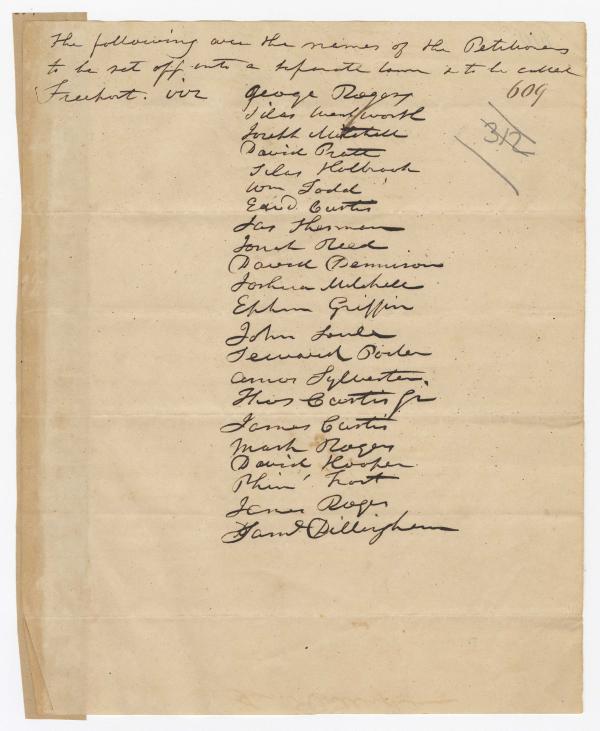 The following are the names of the Petitioners
to be set off into a seperate town & to be called
Freeport. viz George Rogers 609
Silas Wentworth
Joseph Mitchell 312
David Pratt
Silas Holbrook
Wm Todd
Edwd. Curtis
Jas Sherman
Jonah Reed
David Dennison
Joshua Mitchell
Ephm Griffin
John Soule
Seward Porter
Amos Sylvester
Thos Curtis Jr
James Curtis
Mark Rogers
David Hooper
Phin' Frost
James Roges
Saml Dillingham